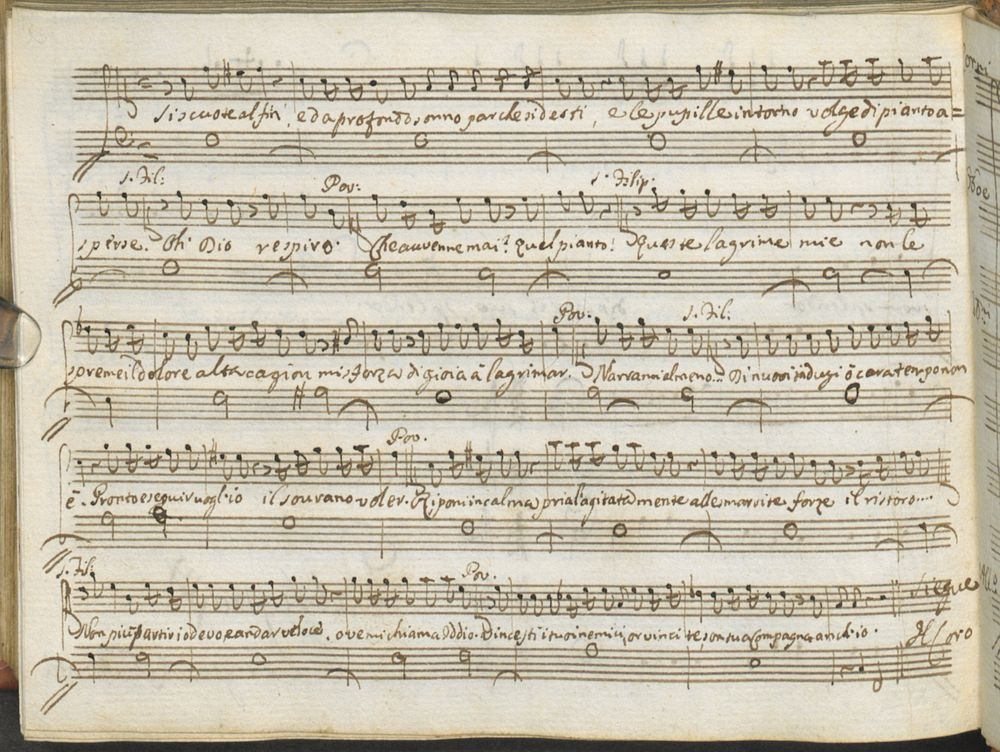 Si scuote al fin, e da profondo sonno par che si desti, e le pupille intorno volge di pianto a=
S. Fil: Pov: S. Filip.
sperse. Oh Dio respiro. Che avvenne mai? quel pianto! Queste lagrime mie non le
Pov: S. Fil:
spreme il dolore alta cagion mi sforza di gioia à lagrimar. Narrami almeno... Di nuovi indugi ò cara tempo non
Pov.
è. Pronto eseguir vogl'io il sourano voler. Ripon in calma pria l'agitata mente alle smarrite forze il ristoro...
S. Fil: Pov.
Non più partir io devo e andar veloce, ove mi chiama Iddio. Vincesti i tuoi nemici, or vinci te, son tua compagna anch'io. Siegue
Il Coro